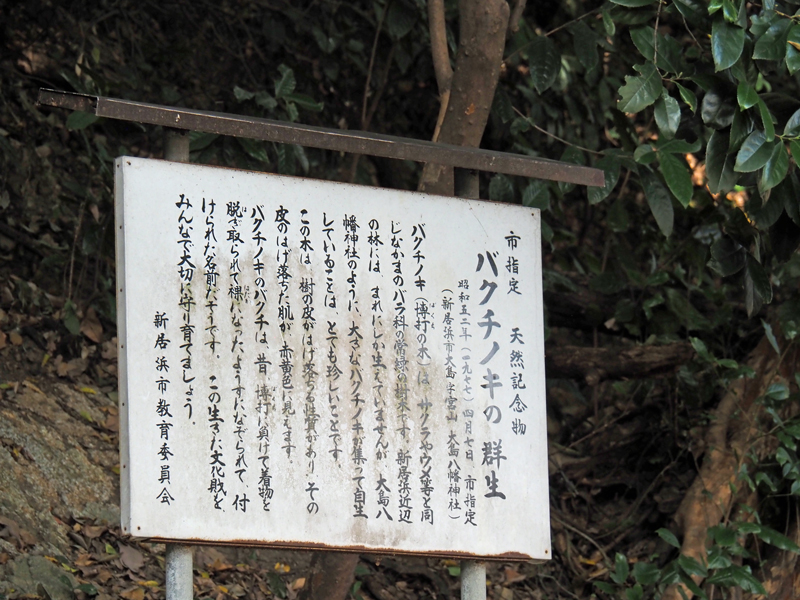 市指定　天然記念物
バクチノキの群生
昭和五二年（一九七七）四月七日　市指定
（新居浜市大島字宮山　大島八幡神社）
バクチノキ（博打の木）は、サクラやウメ等と同
じなかまのバラ科の常緑の樹木です。新居浜近辺
の林には、まれにしか生えていませんが、大島八
幡神社のように、大きなバクチノキが集って自生
していることは、とても珍しいことです。
この木は、樹の皮がはげ落ちる性質があり、その
皮のはげ落ちた肌が、赤黄色に見えます。
バクチノキのバクチは、昔、博打に負けて着物を
脱ぎ取られて裸になったようすになぞられて、付
けられた名前だそうです。この生きた文化財を
みんなで大切に守り育てましょう。
新居浜市教育委員会